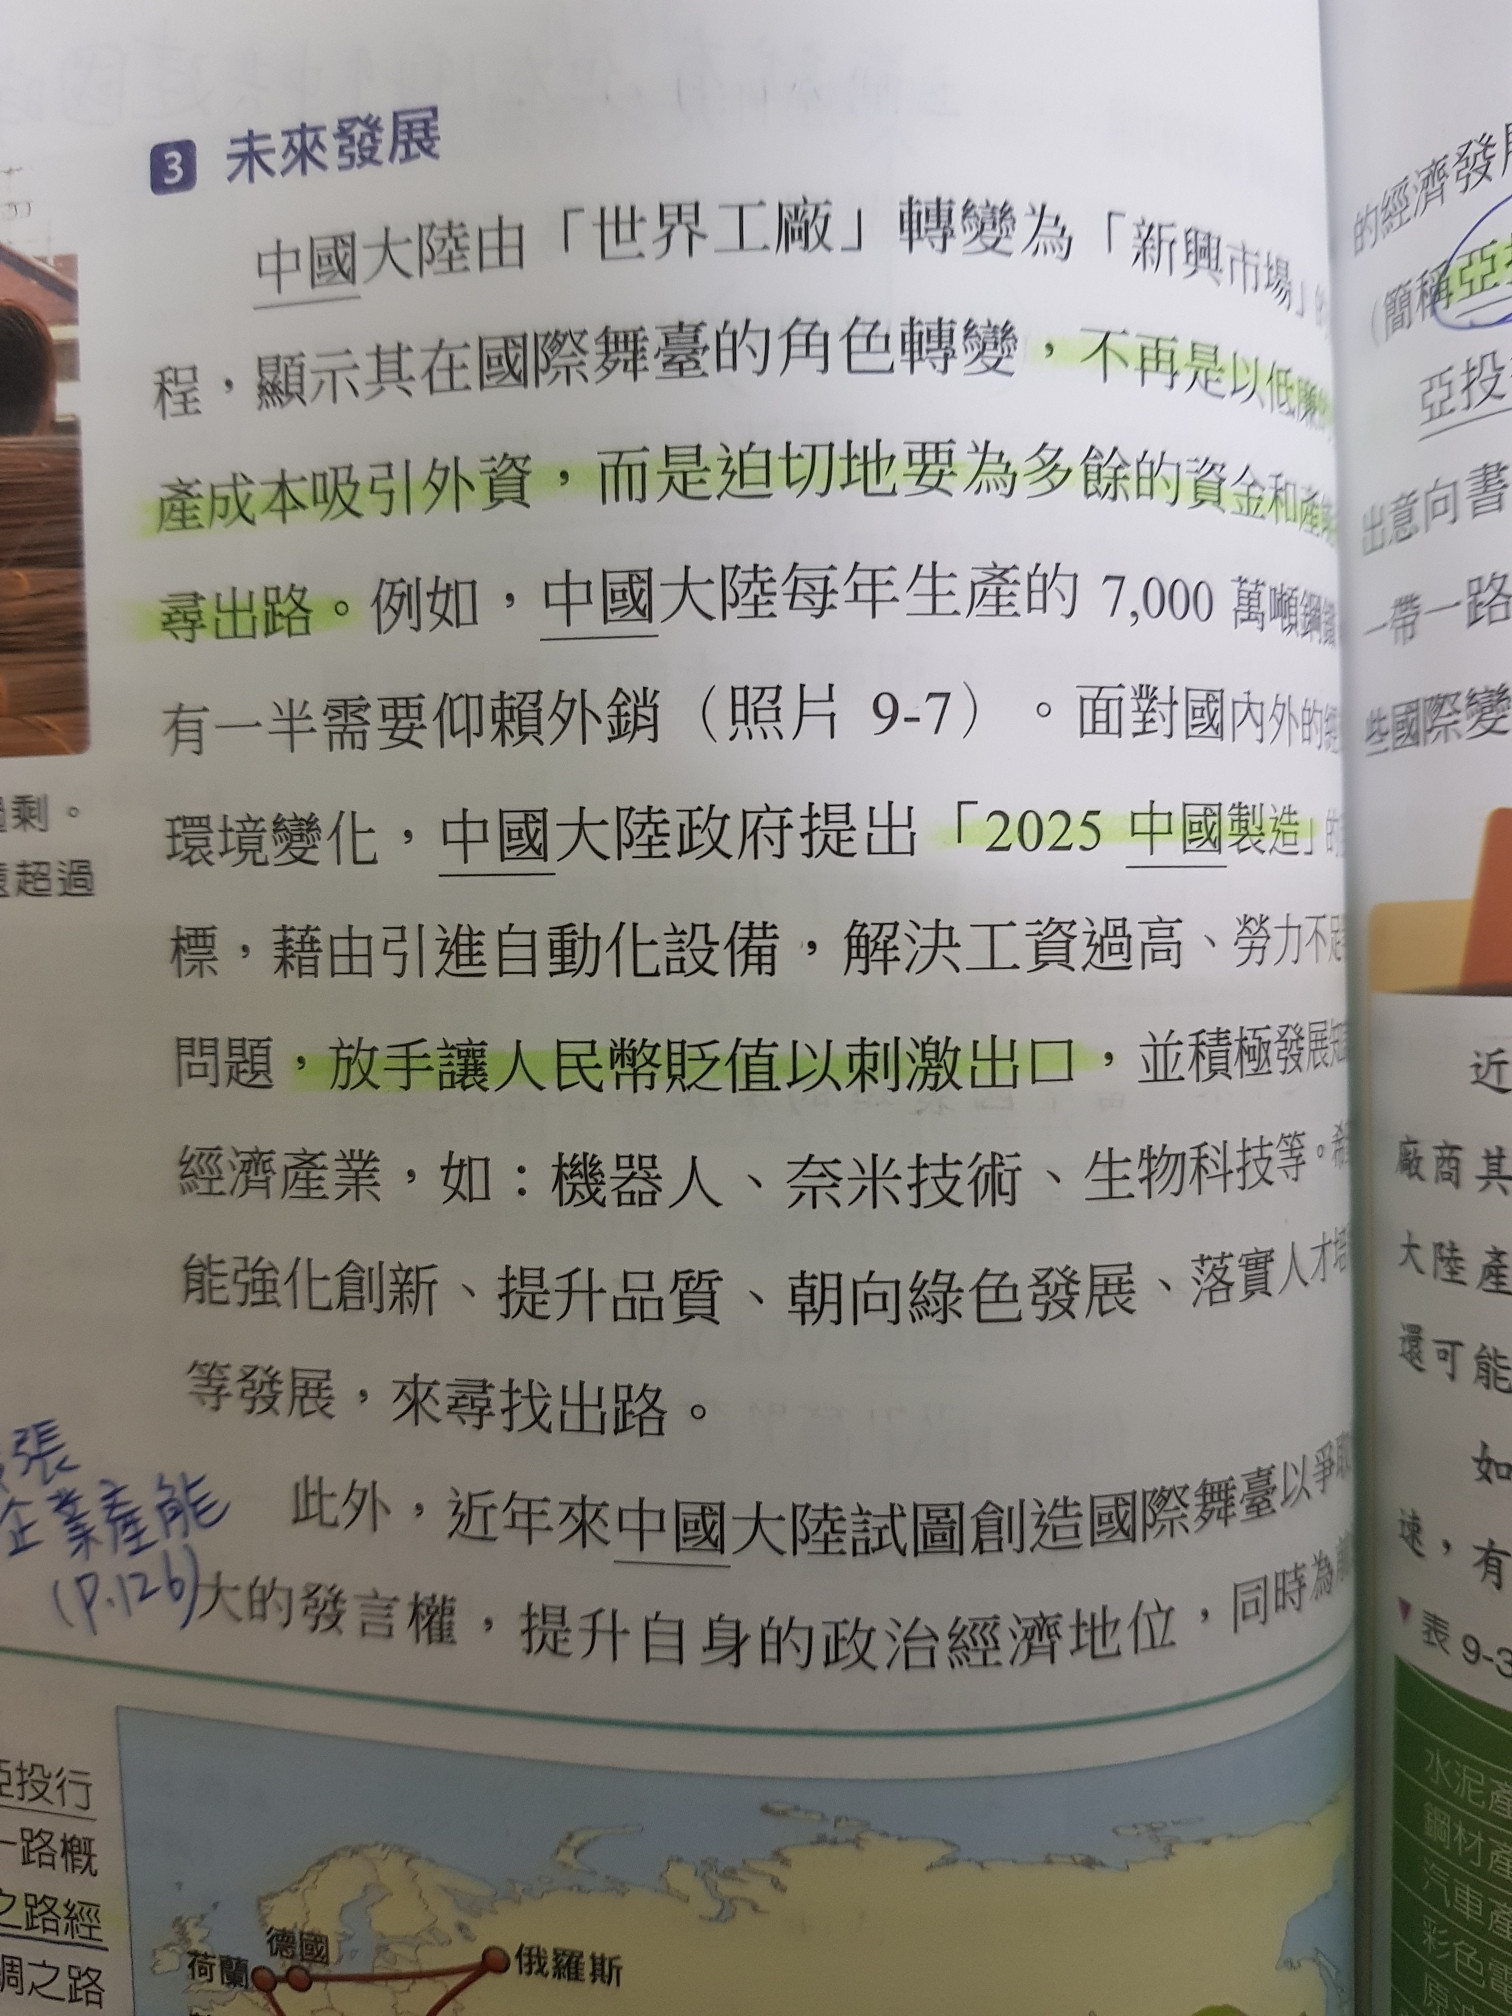 3 未來發展
中國大陸由「世界工廠」轉變為「新興市場」
程，顯示其在國際舞臺的角色轉變，不再是以低廉
產成本吸引外資，而是迫切地要為多餘的資金和產
尋出路。例如，中國大陸每年生產的 7,000 萬噸鋼鐵
有一半需要仰賴外銷（照片 9-7）。面對國內外的
環境變化，中國大陸政府提出「2025 中國製造」的
標，藉由引進自動化設備，解決工資過高、勞力不足
問題，放手讓人民幣貶值以刺激出口，並積極發展知
經濟產業，如：機器人、奈米技術、生物科技等。
能強化創新、提升品質、朝向綠色發展、落實人才培
等發展，來尋找出路。
此外，近年來中國大陸試圖創造國際舞臺以爭取
大的發言權，提升自身的政治經濟地位，同時為
剩。
超過
張
企業產能
(P.126)
亞投行
一路概
之路經
之路
荷蘭
德國
俄羅斯
的經濟發展
（簡稱亞投
亞投
出意向書
一帶一路
些國際變
近
廠商其
大陸產
還可能
如
速，有
表 9-3
水泥產
鋼材產
汽車產
彩色電
原